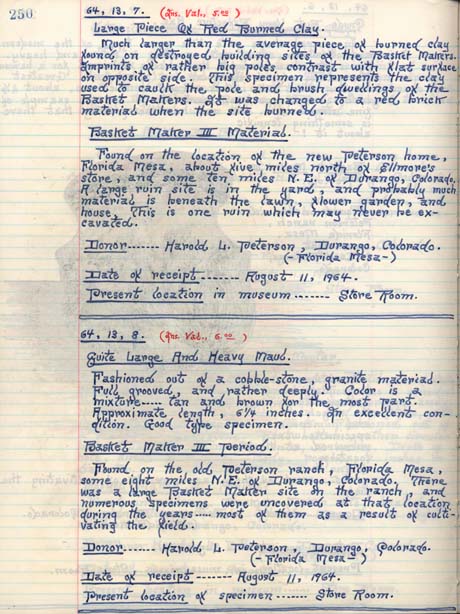 250
64, 13, 7. (Ins. Val., 5.00)
Large Piece Of Red Burned Clay.
Much larger than the average piece of burned clay
found on destroyed building sites of the Basket Makers.
Imprints of rather big poles contrast with flat surface
on opposite side. This specimen represents the clay
used to caulk the pole and brush dwellings of the
Basket Makers. It was changed to a red brick
material when the site burned.
Basket Maker III Material.
Found on the location of the new Peterson home,
Florida Mesa, about five miles north of Ellmore's
store, and some ten miles N.E. of Durango, Colorado.
A large ruin site is in the yard, and probably much
material is beneath the lawn, flower garden, and
house. This is one ruin which may never be ex-
cavated.
Donor------- Harold L. Peterson, Durango, Colorado.
(-Florida Mesa-)
Date of receipt ------- August 11, 1964.
Present location in museum ------- Store Room.
64, 13, 8. (Ins. Val., 6.00)
Quite Large And Heavy Maul.
Fashioned out of a cobble-stone, granite material.
Full grooved, and rather deeply. Color is a
mixture--- tan and brown for the most part.
Approximate length, 6 1/4 inches. In excellent con-
dition. Good type specimen.
Basket Maker III Period.
Found on the old Peterson ranch, Florida Mesa,
some eight miles N.E. of Durango, Colorado. There
was a large Basket Maker site on the ranch, and
numerous specimens were uncovered at that location
during the years---- most of them as a result of culti-
vating the field.
Donor------- Harold L. Peterson, Durango, Colorado.
(-Florida Mesa-)
Date of receipt ------- August 11, 1964.
Present location of specimen ------- Store Room.